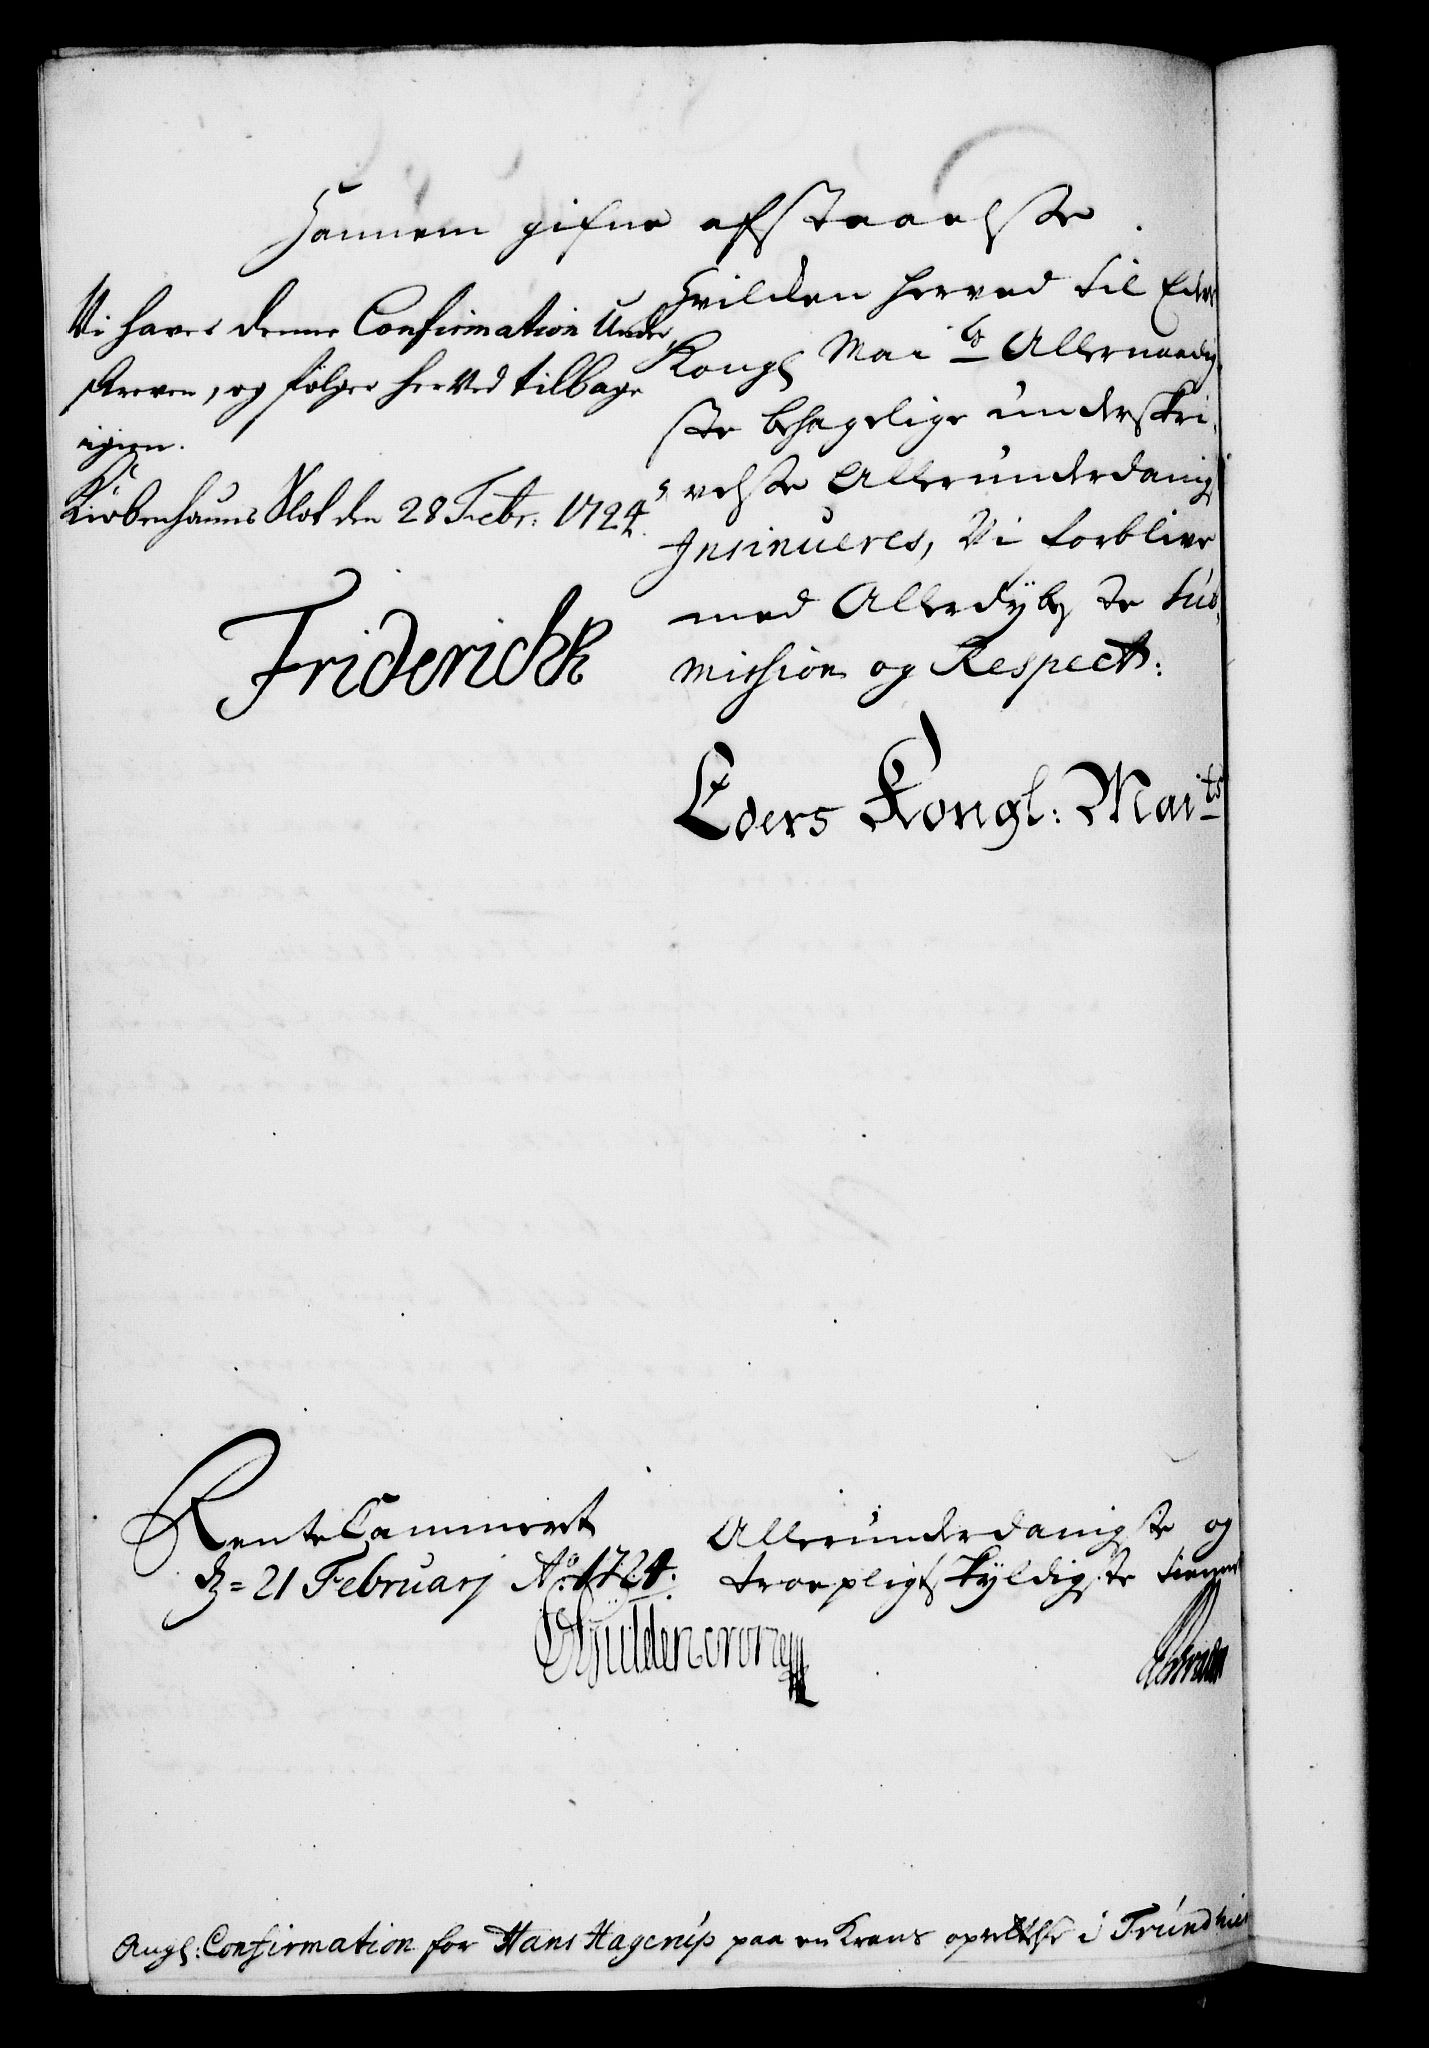 Hannem gifne afstaaelse.
Vi haver denne Confirmation Under
skreven, og følger herved tilbage
igien.
Kiøbenhauns Slot den 28 Febr: 1724.
Friderich R
Hvilken herved til Eders
Kongl Mai ts Allernaadig
ste behagelige underskri,
velse Allerunderdanigst
Insinueres, Vi forblive
med Allerdybeste Sub,
mission og Respect:
Eders Kongl: Mai ts
Rente Cammeret
d: 21 Februarj Ao: 1724.
Allerunderdanigste og
troepligtskyldigste tienere
Güldencrone
Ang: Confirmation for Hans Hagerúp paa en Krans oprettelse i Trúndhiem